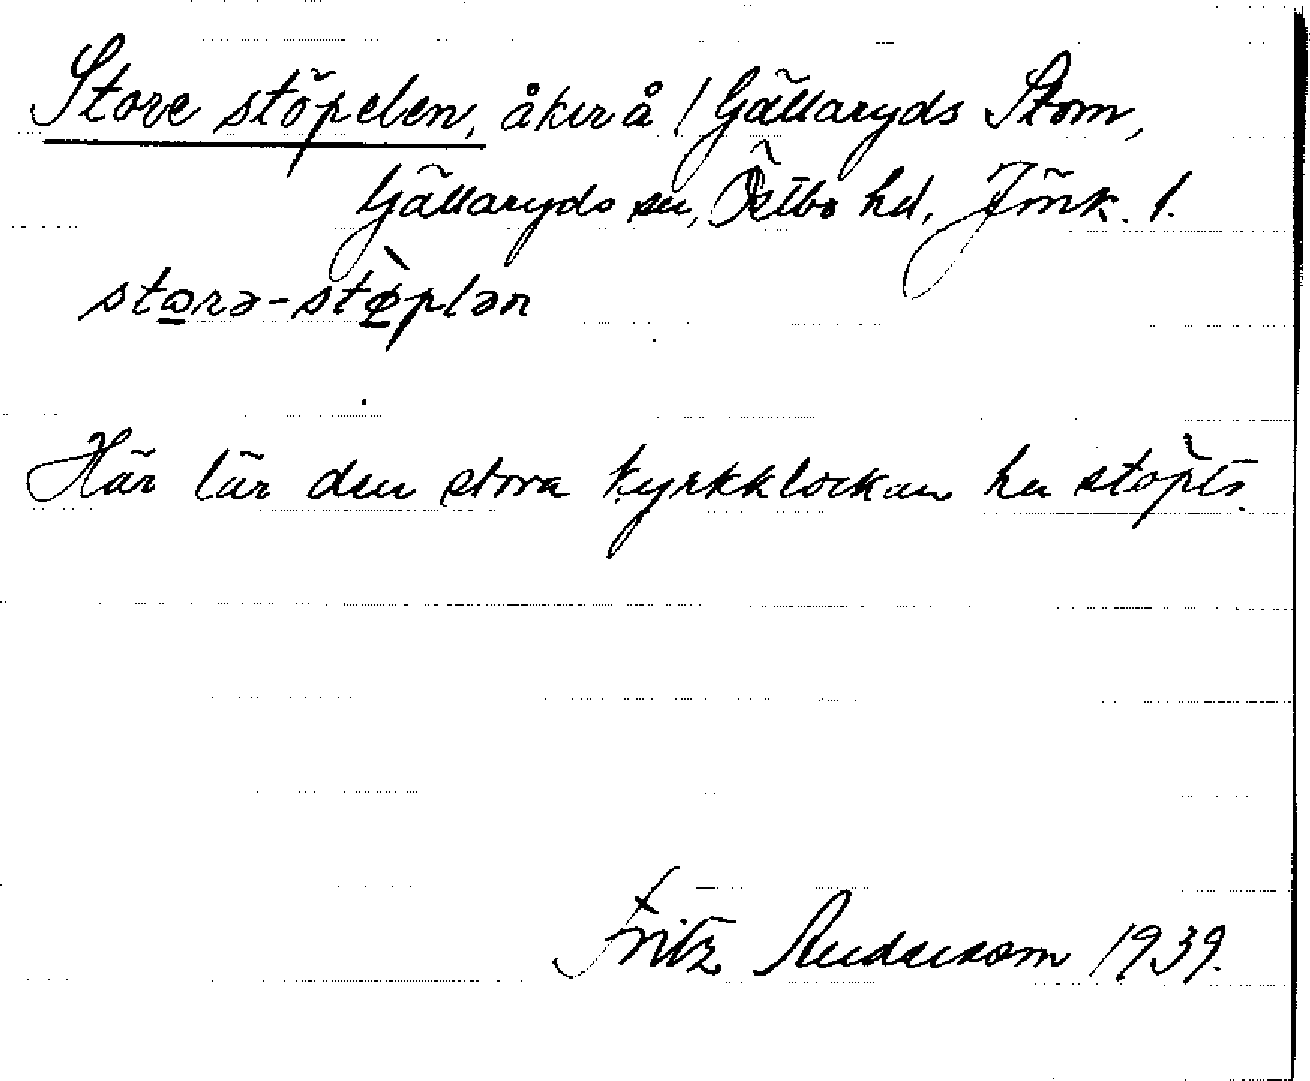 Store stöpelen, åker å / Gällaryds Stom,
Gällaryds sn, Östbo hd, Jönk. l.
storə-stø̀plən
Här lär den stora kyrkklockan ha stöpts.
Fritz Andersson 1939.